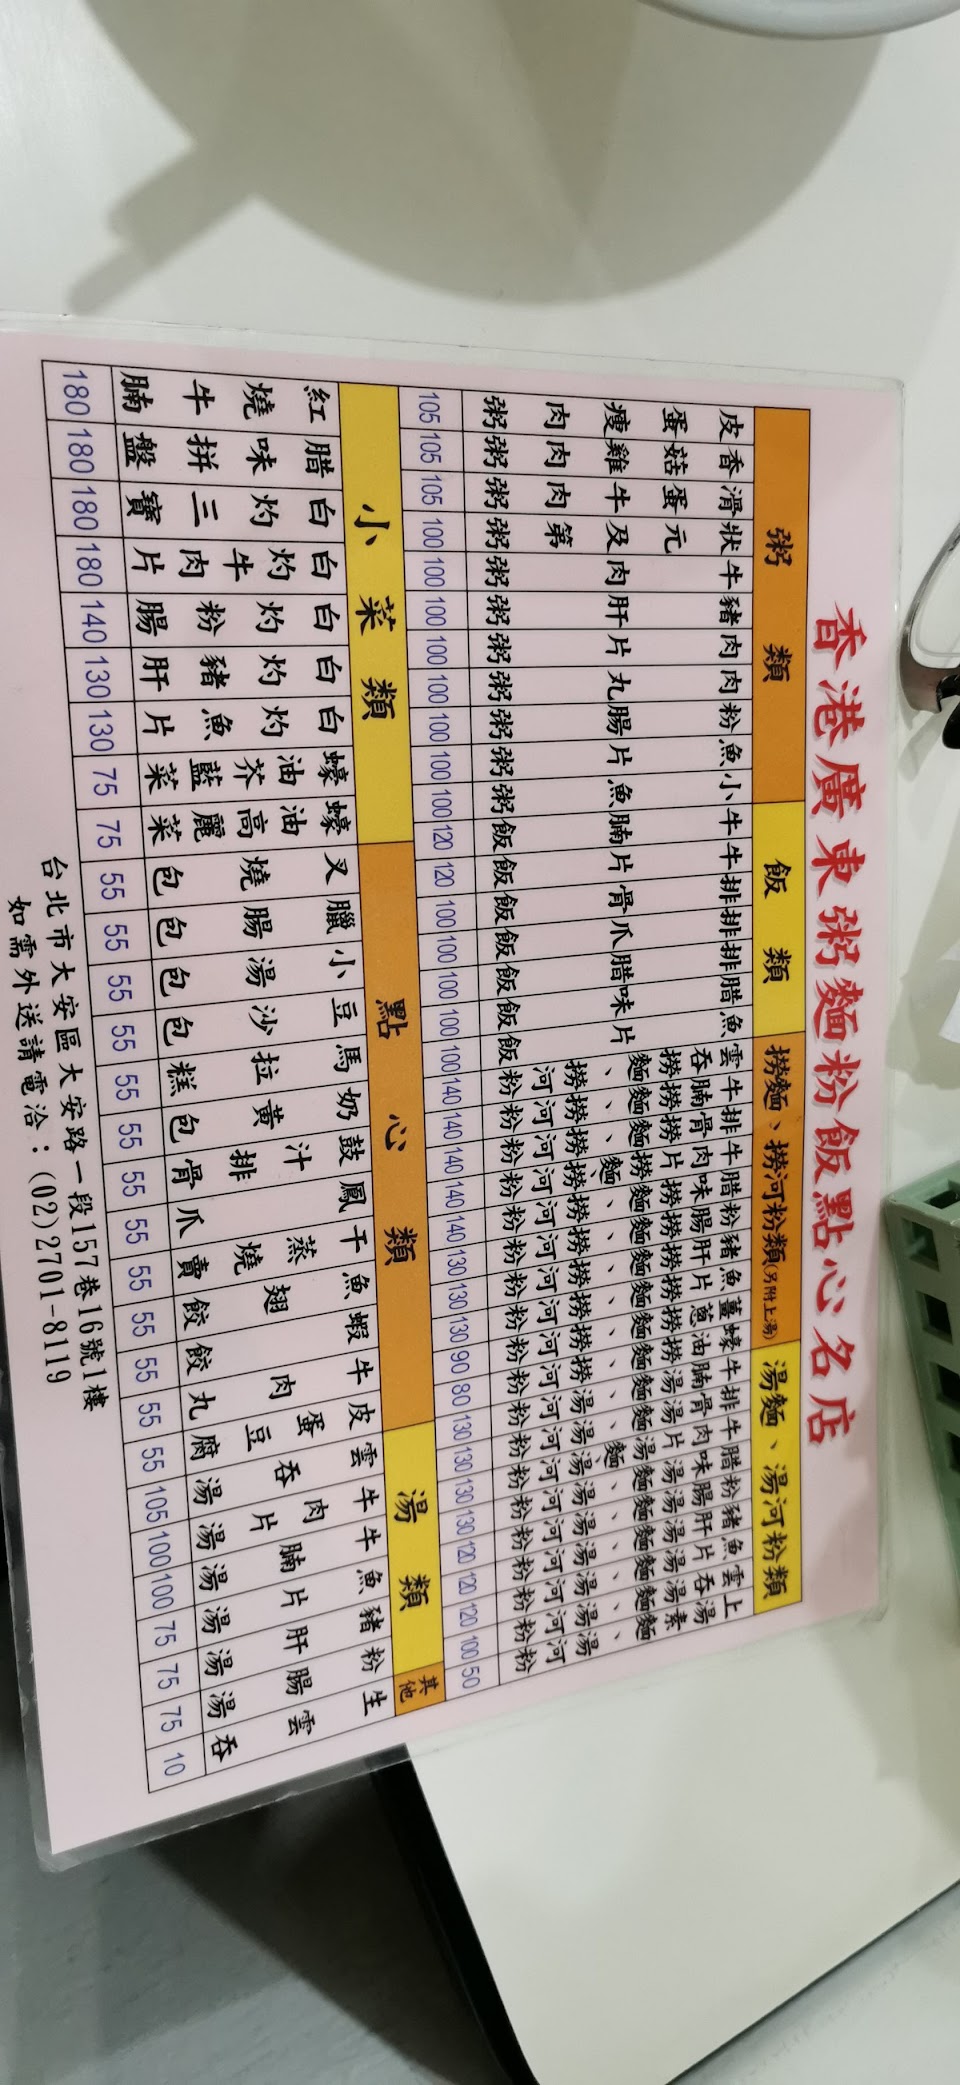 香港廣東粥麵粉飯點心名店
粥類
皮蛋瘦肉粥 105
香菇雞肉粥 105
滑蛋牛肉粥 105
狀元及第粥 100
牛肉粥 100
豬肝粥 100
肉片粥 100
肉丸粥 100
粉腸粥 100
魚片粥 100
小魚粥 100
飯類
牛腩飯 120
牛片飯 120
排骨飯 100
排爪飯 100
排腊飯 100
腊味飯 100
魚片飯 100
撈麵、撈河粉類(另附上湯)
雲吞撈麵、撈河粉 140
牛腩撈麵、撈河粉 140
排骨撈麵、撈河粉 140
牛肉片撈麵、撈河粉 140
腊味撈麵、撈河粉 140
粉腸撈麵、撈河粉 130
豬肝撈麵、撈河粉 130
魚片撈麵、撈河粉 130
薑蔥撈麵、撈河粉 90
蠔油撈麵、撈河粉 80
湯麵、湯河粉類
牛腩湯麵、湯河粉 130
排骨湯麵、湯河粉 130
牛肉片湯麵、湯河粉 130
腊味湯麵、湯河粉 130
粉腸湯麵、湯河粉 120
豬肝湯麵、湯河粉 120
魚片湯麵、湯河粉 120
雲吞湯麵、湯河粉 100
上湯素麵、湯河粉 50
小菜類
紅燒牛腩 180
腊味拼盤 180
白灼三寶 180
白灼牛肉片 180
白灼粉腸 140
白灼豬肝 130
白灼魚片 130
蠔油芥藍菜 75
蠔油高麗菜 75
點心類
叉燒包 55
臘腸包 55
小湯包 55
豆沙包 55
馬拉糕 55
奶黃包 55
鼓汁排骨 55
鳳爪 55
干蒸燒賣 55
魚翅餃 55
蝦餃 55
牛肉丸 55
皮蛋豆腐 55
湯類
雲吞湯 105
牛肉片湯 100
牛腩湯 100
魚片湯 75
豬肝湯 75
粉腸湯 75
其他
生雲吞 10
台北市大安區大安路一段157巷16號1樓
如需外送請電洽：(02)2701-8119